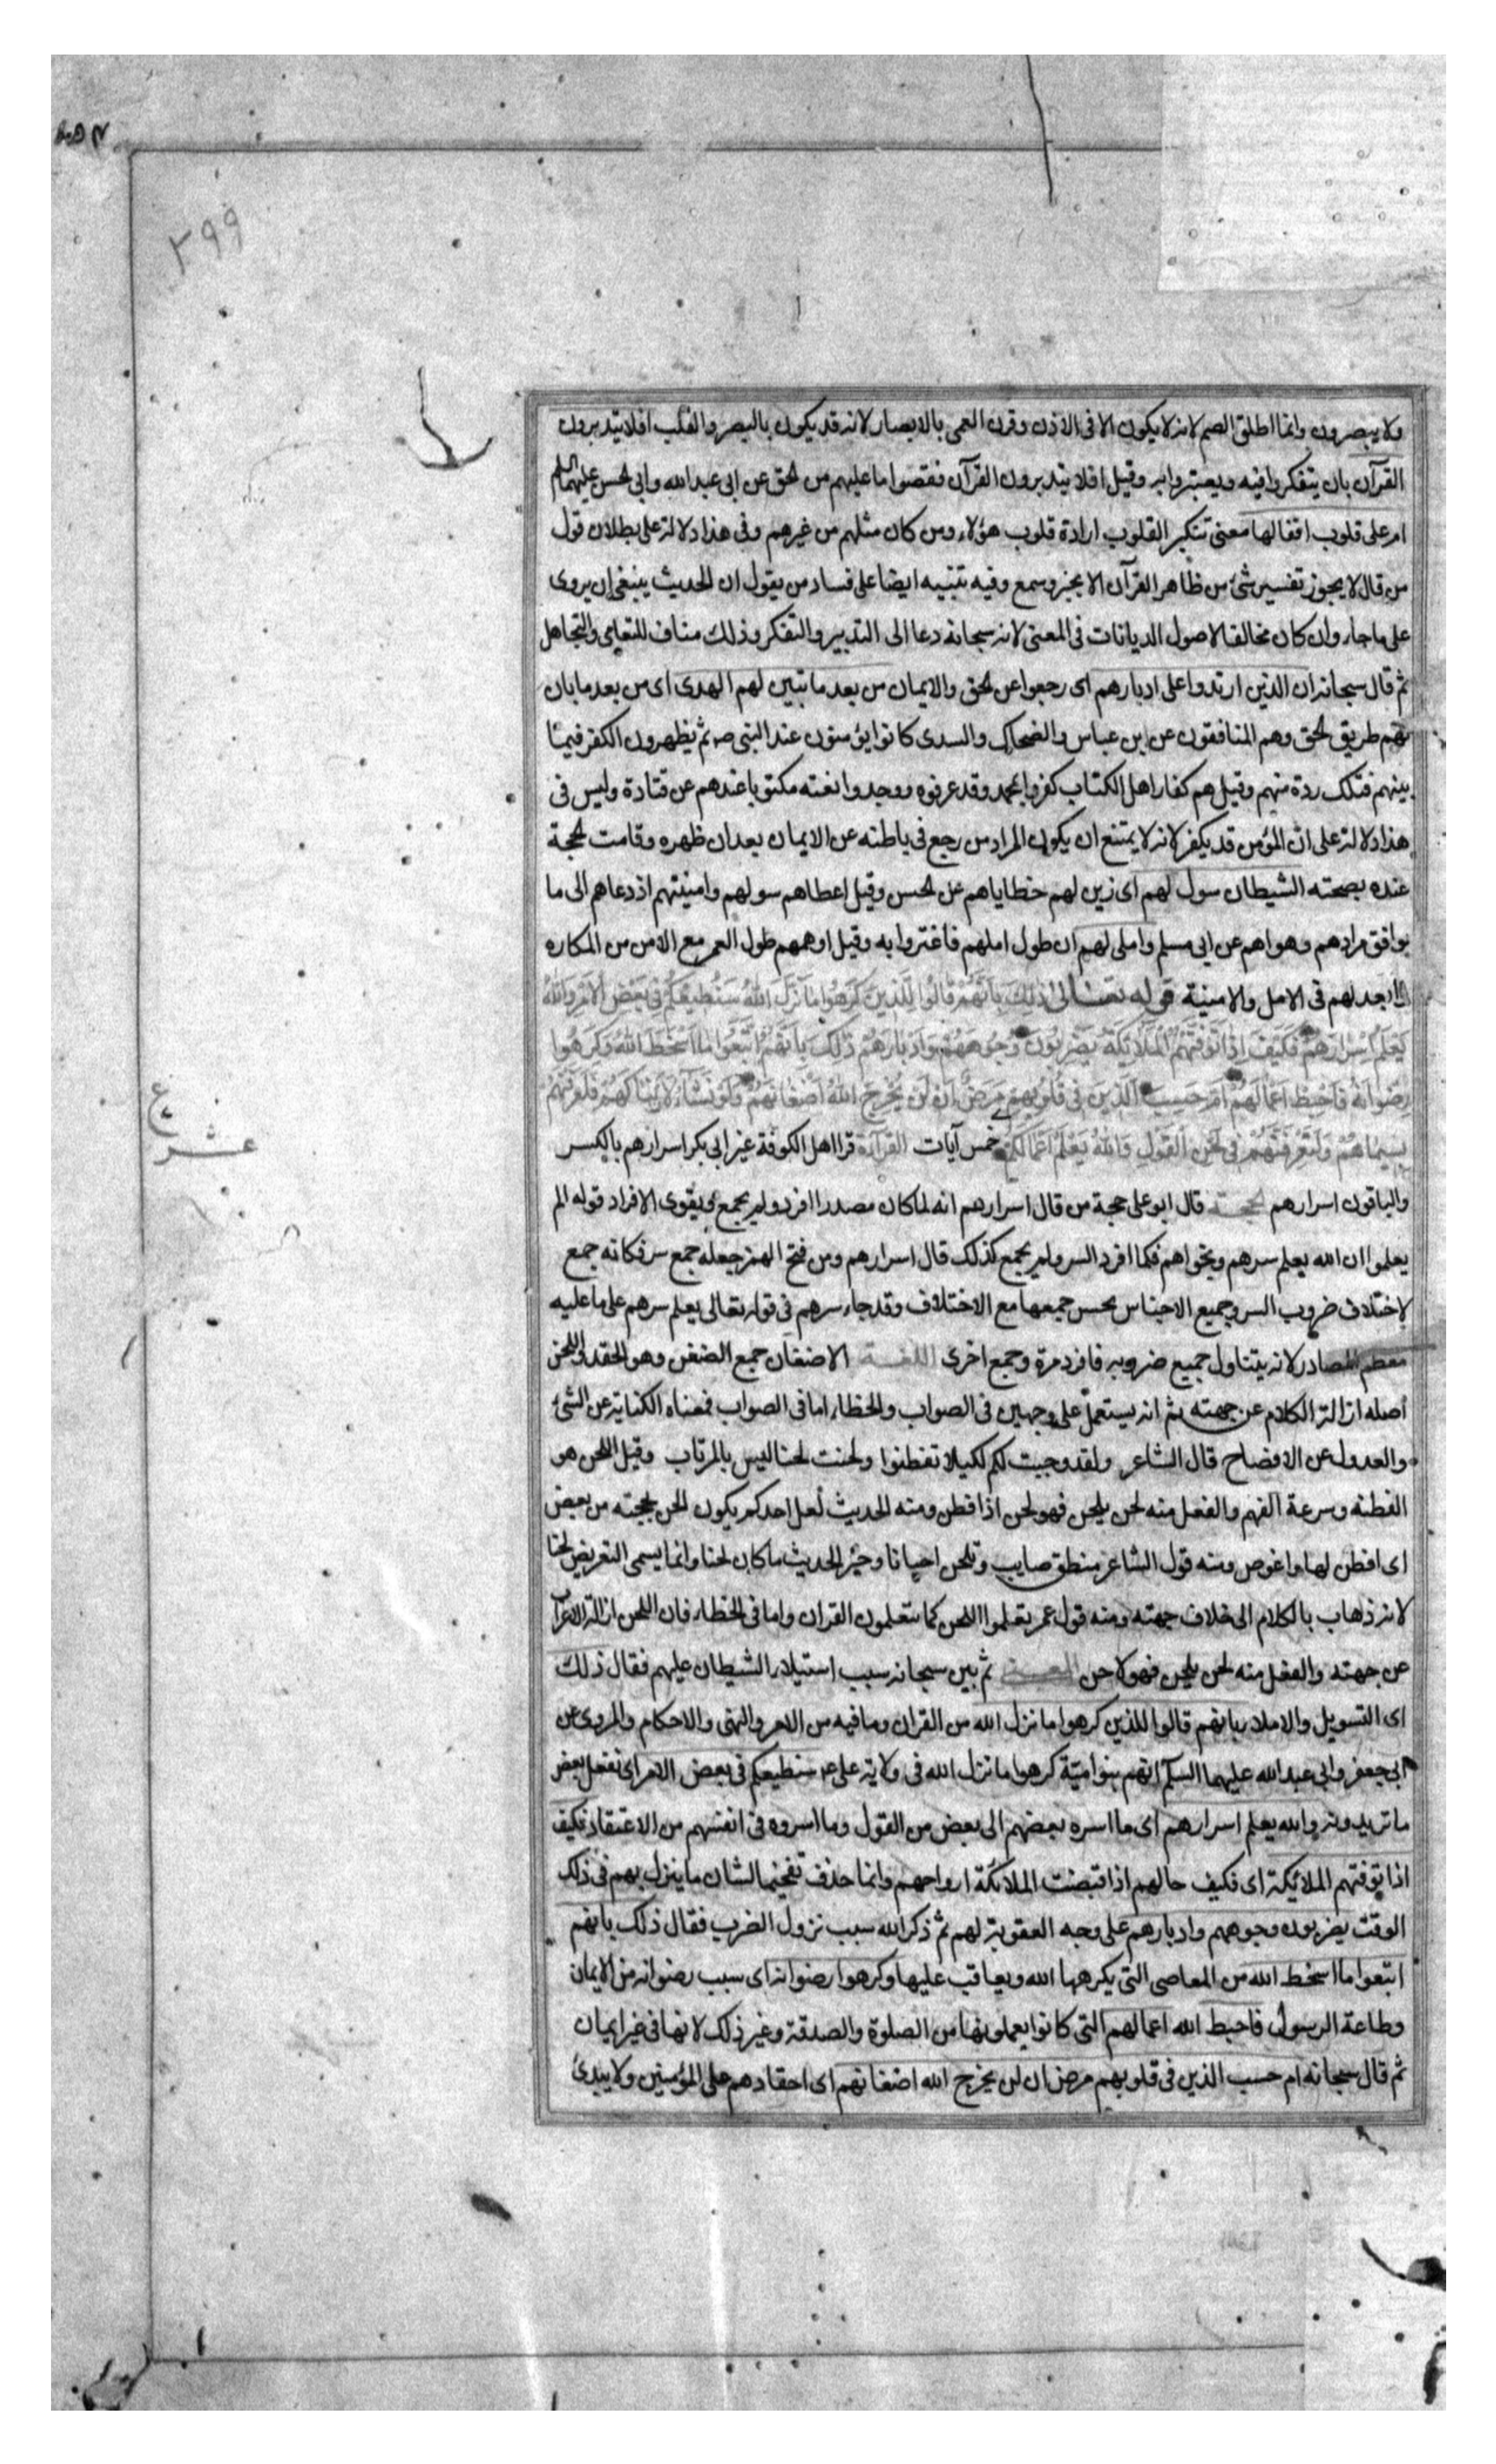 ٢٩٩
ولا يبصرون وانما اطلق الصم لانه لا يكون الا فى الاذن وقرن العمى بالابصار لانه قد يكون بالبصر والقلب افلا يتدبرون
القرآن بان يتفكروا فيه ويعتبروا به وقيل افلا يتدبرون القرآن فقضوا ما عليهم من لحق عن ابى عبد الله وابى لحسن عليهما السلم
ام على قلوب اقفالها معنى تنكير القلوب ارادة قلوب هؤلاء ومن كان مثلهم من غيرهم وفى هذا دلالة على بطلان قول
من قال لا يجوز تفسير شئ من ظاهر القرآن الا بخبر وسمع وفيه تنبيه ايضا على فساد من يقول ان الحديث ينبغى ان يروى
على ما جاء وان كان مخالفا لاصول الديانات فى المعنى لانه سبحانه دعا الى التدبير والتفكر وذلك مناف للتعامى والتجاهل
ثم قال سبحانه ان الذين ارتدوا على ادبارهم اى رجعوا عن لحق والايمان من بعد ما تبين لهم الهدى اى من بعد ما بان
لهم طريق لحق وهم المنافقون عن ابن عباس والضحاك والسدى كانوا يؤمنون عند النبى ص ثم يظهرون الكفر فيما
بينهم فتلك ردة منهم وقيل هم كفار اهل الكتاب كفروا بمحمد وقد عرفوه ووجدوا نعته مكتوبا عندهم عن قتادة وليس فى
هذا دلالة على ان المؤمن قد يكفر لانه لا يمتنع ان يكون المراد من رجع فى باطنه عن الايمان بعد ان ظهره وقامت لحجة
عنده بصحته الشيطان سول لهم اى زين لهم خطاياهم عن لحسن وقيل اعطاهم سولهم وامنيتهم اذ دعاهم الى ما
يوافق مرادهم وهواهم عن ابى مسلم واملى لهم ان طول املهم فاغتروا به وقيل اوهمهم طول العمر مع الامن من المكاره
وابعد لهم فى الامل والامنية قوله تعالى ذلِكَ بِاَنَّهُمْ قالُوا لِلَّذينَ كَرِهُوا ما نَزَّلَ اللهُ سَنُطيعُكُمْ فى بَعْضِ الْاَمْرِ وَاللهُ
يَعْلَمُ اِسْرارَهُمْ فَكَيْفَ اِذا تَوَفَّتْهُمُ الْمَلائِكَةُ يَضْرِبُونَ وُجُوهَهُمْ وَاَدْبارَهُمْ ذلِكَ بِاَنَّهُمُ اتَّبَعُوا ما اَسْخَطَ اللهَ وَكَرِهُوا
رِضْوانَهُ فَاَحْبَطَ اَعْمالَهُمْ اَمْ حَسِبَ الَّذينَ فى قُلُوبِهِمْ مَرَضٌ اَنْ لَنْ يُخْرِجَ اللهُ اَضْغانَهُمْ وَلَوْ نَشاءُ لَاَرَيْناكَهُمْ فَلَعَرَفْتَهُمْ
بِسيماهُمْ وَلَتَعْرِفَنَّهُمْ فى لَحْنِ الْقَوْلِ وَاللهُ يَعْلَمُ اَعْمالَكُمْ خمس آيات القراءة قرا اهل الكوفة غير ابى بكر اسرارهم بالكسر
ع
عشر
والباقون اسرارهم لحجة قال ابو على حجة من قال اسرارهم انه لما كان مصدرا افرد ولم يجمع ويقوى الافراد قوله الم
يعلموا ان الله يعلم سرهم ونجواهم فكما افرد السر ولم يجمع كذلك قال اسرارهم ومن فتح الهمز جعله جمع سر فكانه جمع
لاختلاف ضروب السر وجميع الاجناس يحسن جمعها مع الاختلاف وقد جاء سرهم فى قوله تعالى يعلم سرهم على ما عليه
معظم المصادر لانه يتناول جميع ضروبه فافرد مرة وجمع اخرى اللغة الاضغان جمع الضغن وهو الحقد واللحن
أصله ازالة الكلام عن جهته ثم انه يستعمل على وجهين فى الصواب والخطاء اما فى الصواب فمعناه الكناية عن الشئ
والعدول عن الافصاح قال الشاعر ولقد وحيت لكم لكيلا تفطنوا ولحنت لحنا ليس بالمرتاب وقيل اللحن هو
الفطنة وسرعة الفهم والفعل منه لحن يلحن فهو لحن اذا فطن ومنه الحديث لعل احدكم يكون الحن بحجته من بعض
اى افطن لها واغوص ومنه قول الشاعر منطق صايب وتلحن احيانا وخير الحديث ما كان لحنا وانما يسمى التعريض لحنا
لانه ذهاب بالكلام الى خلاف جهته ومنه قول عمر تعلموا اللحن كما تتعلمون القران واما فى الخطاء فان اللحن ازالة الاعراب
عن جهته والفعل منه لحن يلحن فهو لاحن المعنى ثم بين سبحانه سبب استيلاء الشيطان عليهم فقال ذلك
اى التسويل والاملاء بانهم قالوا للذين كرهوا ما نزل الله من القران وما فيه من الامر والنهى والاحكام والمروى عن
ابى جعفر وابى عبد الله عليهما السلم انهم بنو امية كرهوا ما نزل الله فى ولاية على ع سنطيعكم فى بعض الامر اى نفعل بعض
ما تريدونه والله يعلم اسرارهم اى ما اسره بعضهم الى بعض من القول وما اسروه فى انفسهم من الاعتقاد فكيف
اذا توفتهم الملائكة اى فكيف حالهم اذا قبضت الملائكة ارواحهم وانما حذف تفخيما لشان ما ينزل بهم فى ذلك
الوقت يضربون وجوههم وادبارهم على وجه العقوبة لهم ثم ذكر الله سبب نزول الضرب فقال ذلك بانهم
اتبعوا ما اسخط الله من المعاصى التى يكرهها الله ويعاقب عليها وكرهوا رضوانه اى سبب رضوانه من الايمان
وطاعة الرسول فاحبط الله اعمالهم التى كانوا يعملونها من الصلوة والصدقة وغير ذلك لانها فى غير ايمان
ثم قال سبحانه ام حسب الذين فى قلوبهم مرض ان لن يخرج الله اضغانهم اى احقادهم على المؤمنين ولا يبدئ